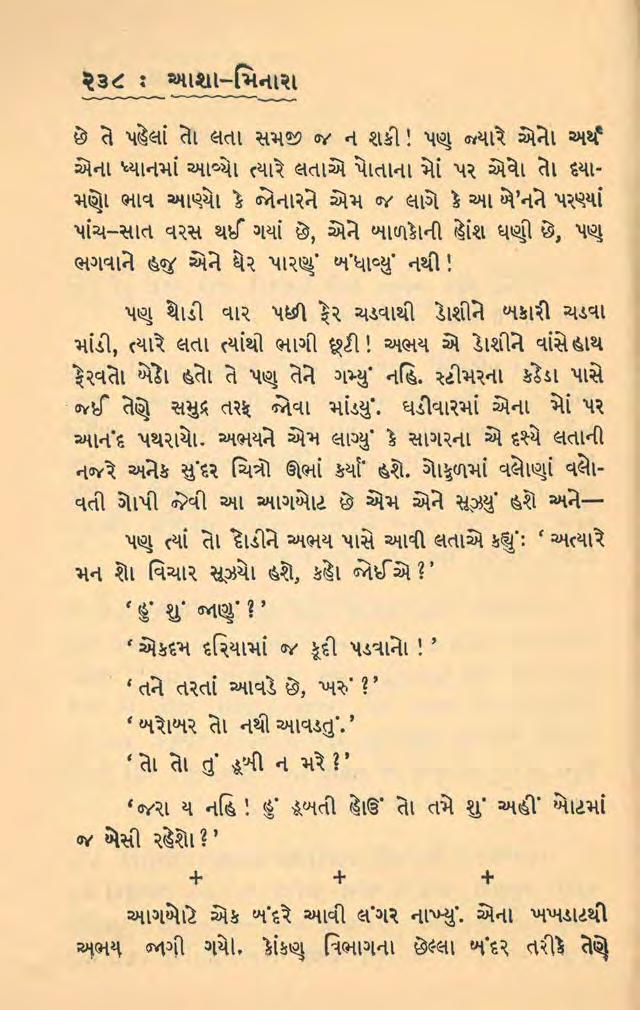 ૨૩૮ : આશા–મિનારા
છે તે પહેલાં તો લતા સમજી જ ન શકી! પણ જ્યારે એનો અર્થ
એના ધ્યાનમાં આવ્યો ત્યારે લતાએ પોતાના મોં પર એવો તો દયા-
મણો ભાવ આણ્યો કે જોનારને એમ જ લાગે કે આ બે'નને પરણ્યાં
પાંચ–સાત વરસ થઈ ગયાં છે, એને બાળકોની હોંશ ઘણી છે, પણ
ભગવાને હજુ એને ઘેર પારણું બંધાવ્યું નથી!
પણ થોડી વાર પછી ફેર ચડવાથી ડોશીને બકારી ચડવા
માંડી, ત્યારે લતા ત્યાંથી ભાગી છૂટી! અભય એ ડોશીને વાંસે હાથ
ફેરવતો બેઠો હતો તે પણ તેને ગમ્યું નહિ. સ્ટીમરના કઠેડા પાસે
જઈ તેણે સમુદ્ર તરફ જોવા માંડયું. ઘડીવારમાં એના મોં પર
આનંદ પથરાયો. અભયને એમ લાગ્યું કે સાગરના એ દૃશ્યે લતાની
નજરે અનેક સુંદર ચિત્રો ઊભાં કર્યાં હશે. ગોકુળમાં વલોણાં વલો-
વતી ગોપી જેવી આ આગબોટ છે એમ એને સૂઝયું હશે અને—
પણ ત્યાં તો દોડીને અભય પાસે આવી લતાએ કહ્યું: ‘અત્યારે
મન શો વિચાર સૂઝયો હશે, કહો જોઈએ?’
‘હું શું જાણું?’
‘એકદમ દરિયામાં જ કૂદી પડવાનો!’
‘તને તરતાં આવડે છે, ખરું?’
‘બરોબર તો નથી આવડતું.’
‘તો તો તું ડૂબી ન મરે?’
‘જરા ય નહિ! હું ડૂબતી હોઉં તો તમે શું અહીં બોટમાં
જ બેસી રહેશો?’
+ + +
આગબોટે એક બંદરે આવી લંગર નાખ્યું. એના ખખડાટથી
અભય જાગી ગયો. કોંકણ વિભાગના છેલ્લા બંદર તરીકે તેણે